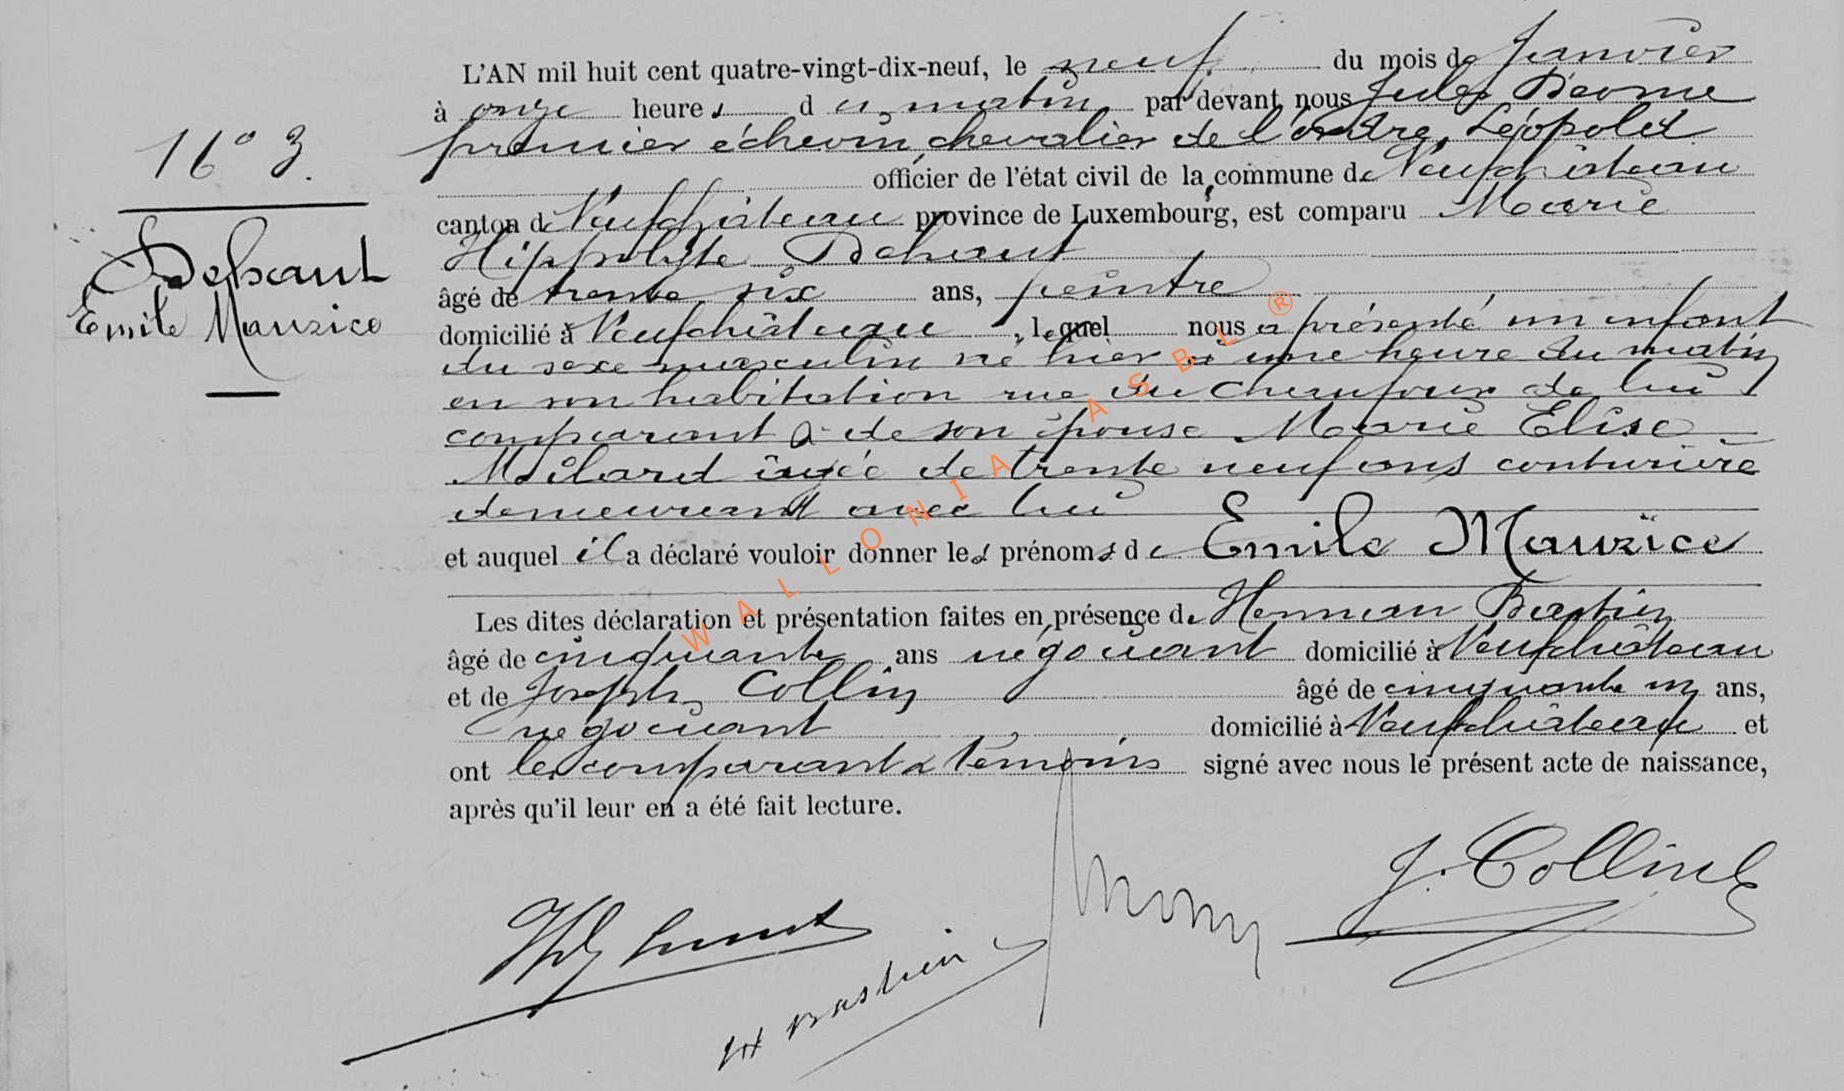 N° 3.
Dehaut
Emile Maurice
L'AN mil huit cent quatre-vingt-dix-neuf, le neuf du mois de Janvier
à onze heures du matin par devant nous Jules
premier échevin, chevalier de l'ordre Léopold
officier de l'état civil de la commune de Neufchâteau
canton de Neufchâteau province de Luxembourg, est comparu Marie
Hippolyte Dehaut
âgé de trente six ans, peintre
domicilié à Neufchâteau, lequel nous a présenté un enfant
du sexe masculin né hier à une heure du matin
en son habitation rue du Chaufour de lui
comparant & de son épouse Marie Elise
Milard âgée de trente neuf ans couturière
demeurant avec lui
et auquel il a déclaré vouloir donner les prénoms de Emile Maurice
Les dites déclaration et présentation faites en présence de Herman Bastin
âgé de cinquante ans négociant domicilié à Neufchâteau
et de Joseph Collin âgé de cinquante un ans,
négociant domicilié à Neufchâteau et
ont les comparant & témoins signé avec nous le présent acte de naissance,
après qu'il leur en a été fait lecture.
J. Collin
H Bastin
WALLONIA ASBL ®